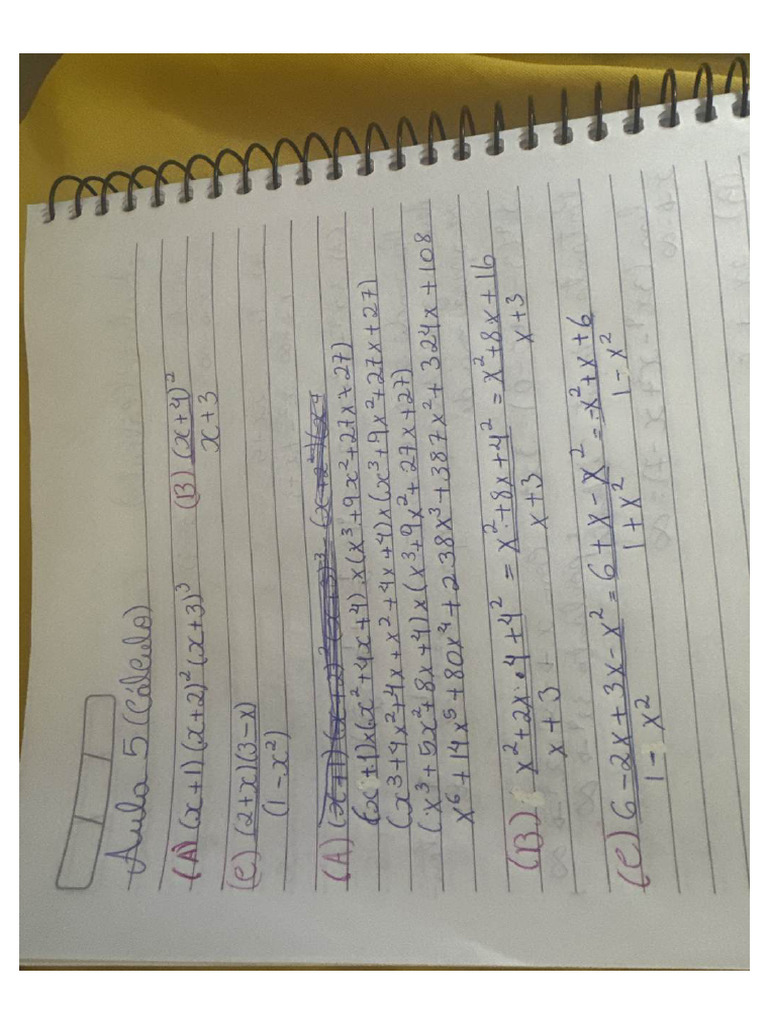 Aula 5 (Cálculo)
(A) (x+1)(x+2)²(x+3)³ (B) (x+4)²/x+3
(C) (2+x)(3-x)/(1-x²)
(A) (x+1)(x+2)²(x+3)³
(x+1)×(x²+4x+4)×(x³+9x²+27x+27)
(x³+4x²+4x+x²+4x+4)×(x³+9x²+27x+27)
(x³+5x²+8x+4)×(x³+9x²+27x+27)
x⁶+14x⁵+80x⁴+238x³+387x²+324x+108
(B) x²+2x·4+4²/x+3 = x²+8x+4²/x+3 = x²+8x+16/x+3
(C) 6-2x+3x-x²/1-x² = 6+x-x²/1+x² = -x²+x+6/1-x²